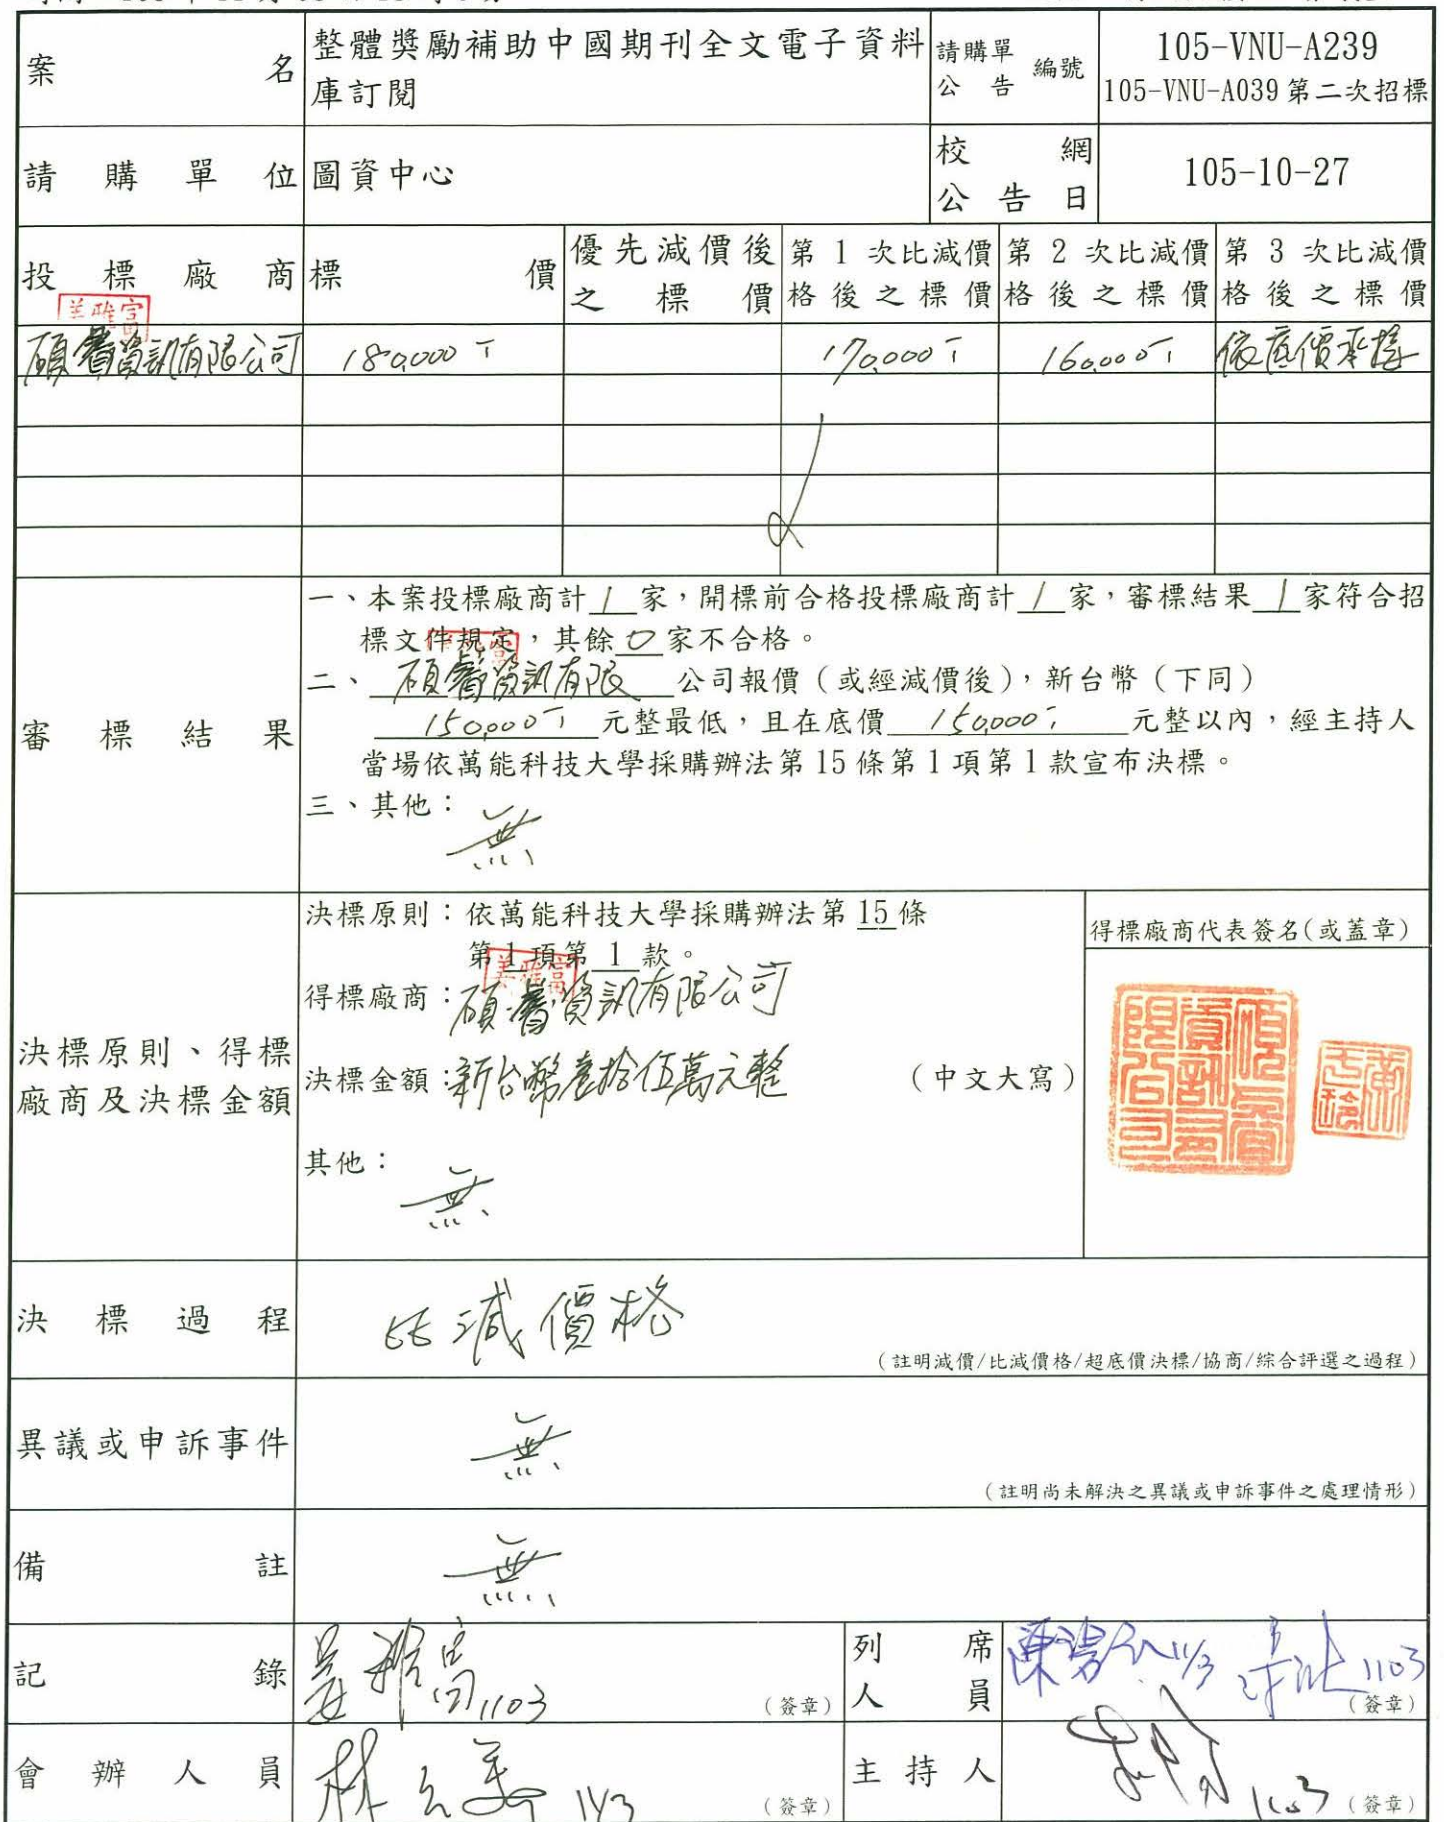 案名
整體獎勵補助中國期刊全文電子資料
庫訂閱
請購單
公告
編號
105-VNU-A239
105-VNU-A039第二次招標
請購單位
圖資中心
校網
公告日
105-10-27
投標廠商
標價
優先減價後
之標價
第1次比減價
格後之標價
第2次比減價
格後之標價
第3次比減價
格後之標價
碩睿資訊有限公司
180,000
170,000
160,000
依底價承接
審標結果
一、本案投標廠商計1家,開標前合格投標廠商計1家,審標結果1家符合招
標文件規定,其餘0家不合格。
二、碩睿資訊有限公司報價(或經減價後),新台幣(下同)
150,000元整最低,且在底價150,000元整以內,經主持人
當場依萬能科技大學採購辦法第15條第1項第1款宣布決標。
三、其他:
無
決標原則、得標
廠商及決標金額
決標原則:依萬能科技大學採購辦法第15條
第1項第1款。
得標廠商:碩睿資訊有限公司
決標金額:新台幣壹拾伍萬元整 (中文大寫)
其他:
無
得標廠商代表簽名(或蓋章)
決標過程
比減價格
(註明減價/比減價格/超底價決標/協商/綜合評選之過程)
異議或申訴事件
無
(註明尚未解決之異議或申訴事件之處理情形)
備註
無
記錄
姜雅富1103
(簽章)
列席
人員
11/3
1103
(簽章)
會辦人員
林
11/3
(簽章)
主持人
1103
(簽章)